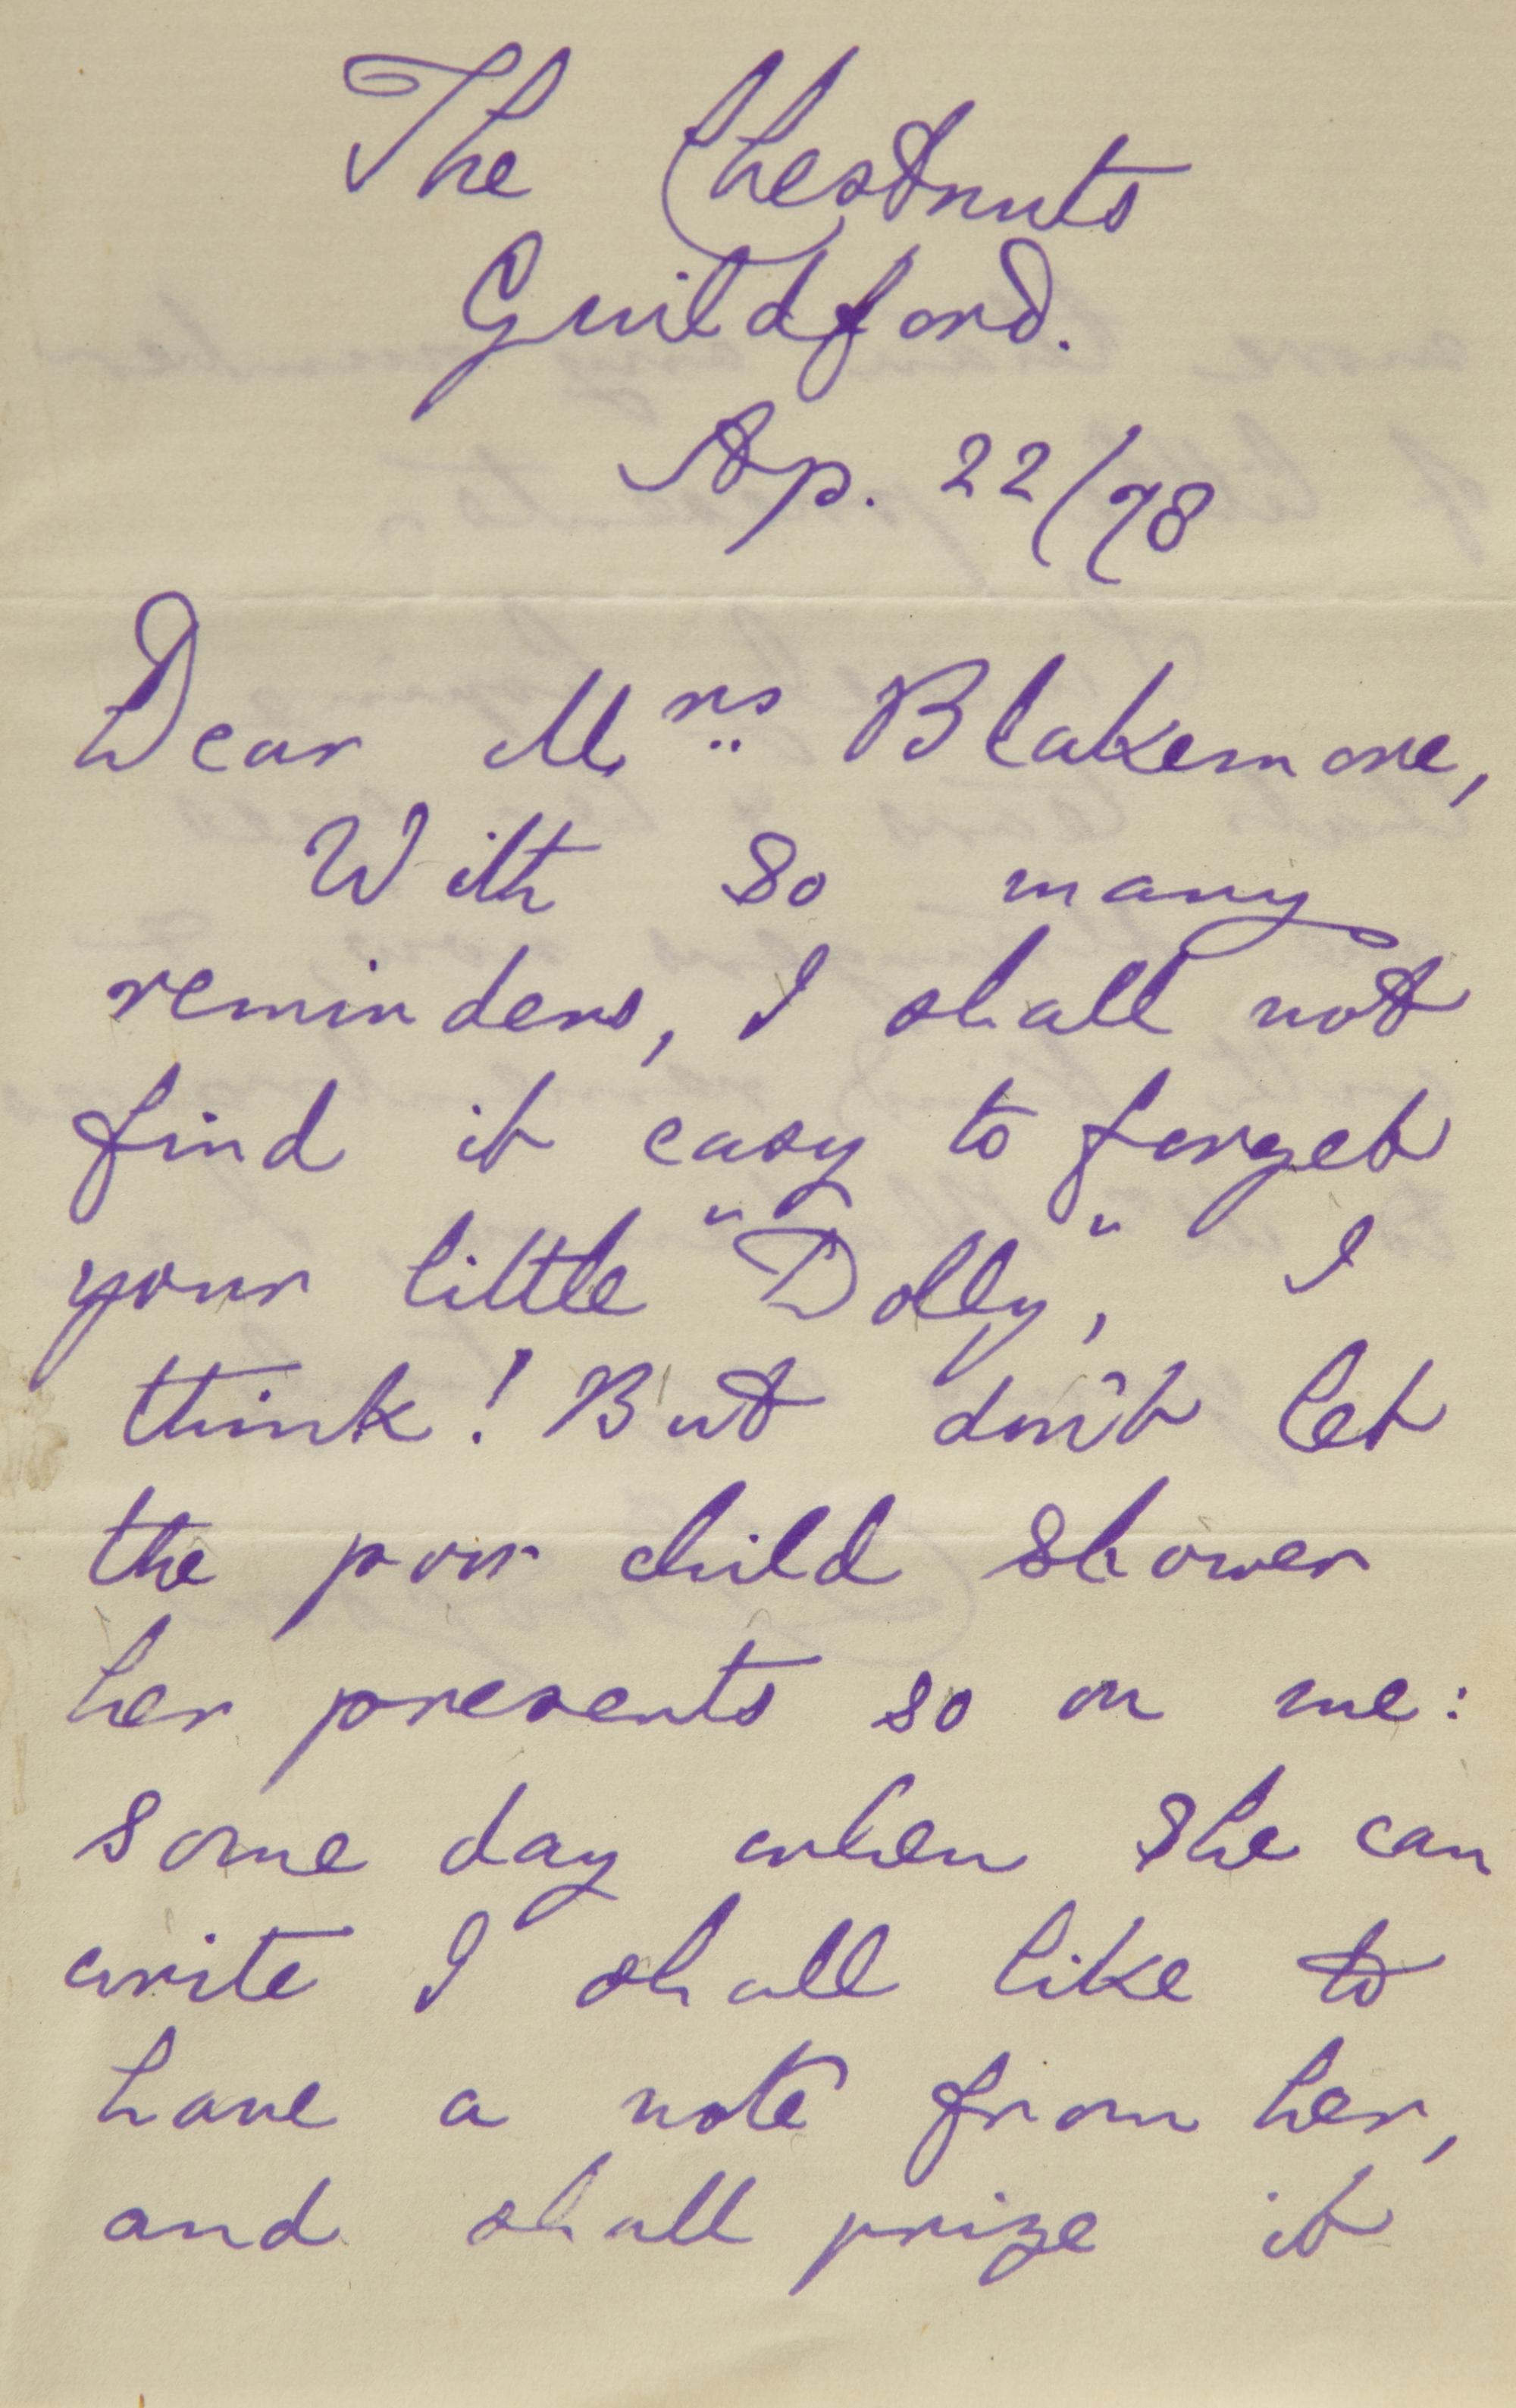 The Chestnuts
Guildford.
Ap. 22/78
Dear Mrs Blakemore,
With so many
reminders, I shall not
find it easy to forget
your little "Dolly", I
think! But don't let
the poor child shower
her presents so on me:
some day when she can
write I shall like to
have a note from her,
and shall prize it